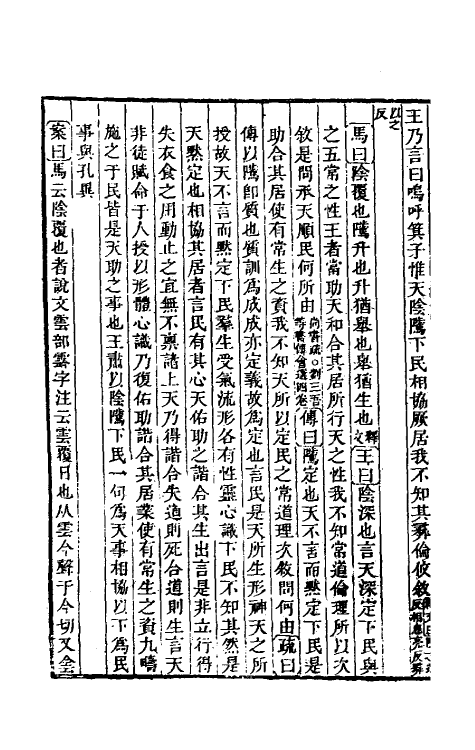 王乃言曰嗚呼箕子惟天陰隲下民相協厥居我不知其彝倫攸敘
以之反
馬曰陰覆也隲升也升猶舉也舉猶生也釋文王曰陰深也言天深定下民與
之五常之性王者當助天和合其居所行天之性我不知常道倫理所以次
敘是問承天順民何所由尚書疏○劉三吾書傳會選四卷傳曰隲定也天不言而默定下民是
助合其居使有常生之資我不知天所以定民之常道理次敘問何由疏曰
傳以隲即質也質訓為成成亦定義故為定也言民是天所生形神天之所
授故天不言而默定下民羣生受氣流形各有性靈心識下民不知其然是
天默定也相協其居者言民有其心天佑助之諧合其生出言是非立行得
失衣食之用動止之宜無不稟諸上天乃得諧合失道則死合道則生言天
非徒賦命于人授以形體心識乃復佑助諧合其居業使有常生之資九疇
施之于民皆是天助之事也王肅以陰隲下民一句為天事相協以下為民
事與孔異
案曰馬云陰覆也者說文雲部霒字注云雲覆日也从雲今聲于今切又侌